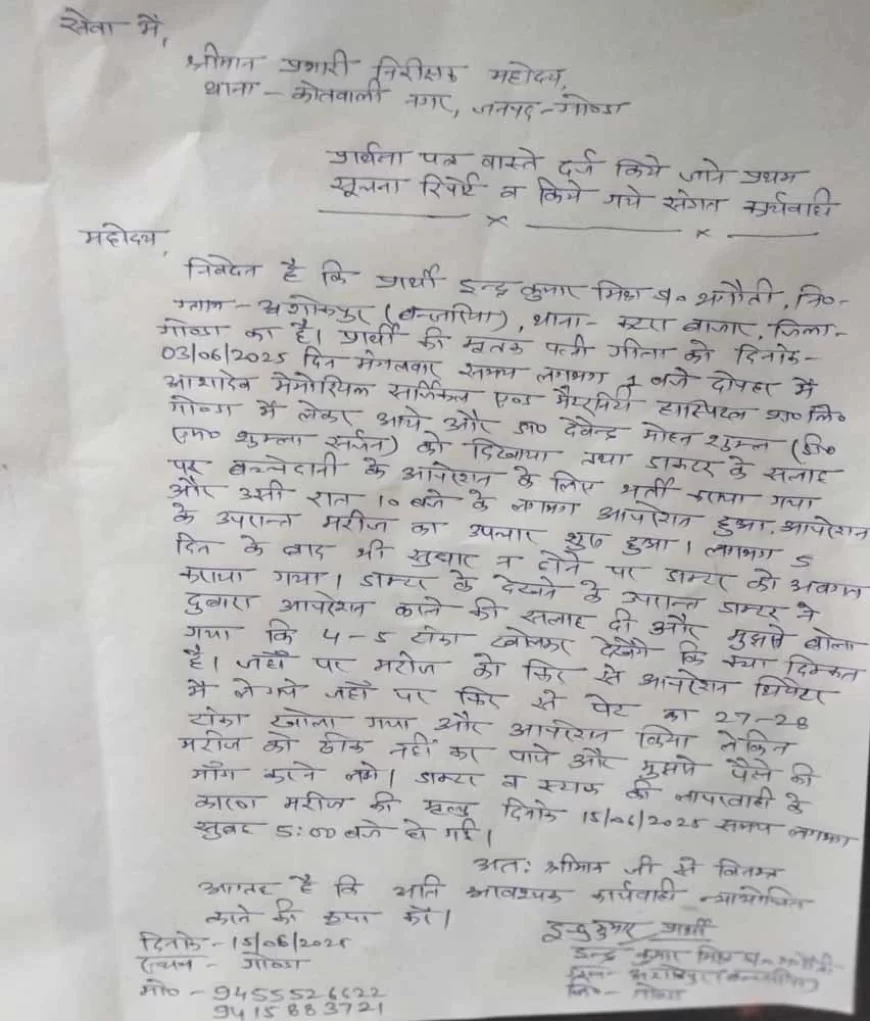 सेवा में,
श्रीमान प्रभारी निरीक्षक महोदय,
थाना - कोतवाली नगर, जनपद - गोण्डा
प्रार्थना पत्र वास्ते दर्ज किये जाने प्रथम
सूचना रिपोर्ट व किये गये संगत कार्यवाही
महोदय,
निवेदन है कि प्रार्थी इन्द्र कुमार मिश्र पु० भगौती, नि०-
ग्राम - अशोकपुर (बनजरिया), थाना - कटरा बाजार, जिला-
गोण्डा का है। प्रार्थी की मृतक पत्नी गीता को दिनांक-
03/06/2025 दिन मंगलवार समय लगभग 1 बजे दोपहर में
आशादेव मेमोरियल सर्जिकल एण्ड मैटरनिटी हास्पिटल प्रा० लि०
गोण्डा में लेकर आये और डा० देवेन्द्र मोहन शुक्ल (डी०
एम० शुक्ला सर्जन) को दिखाया तथा डाक्टर के सलाह
पर बच्चेदानी के आपरेशन के लिए भर्ती कराया गया
और उसी रात 10 बजे के लगभग आपरेशन हुआ, आपरेशन
के उपरान्त मरीज का उपचार शुरू हुआ। लगभग 5
दिन के बाद भी सुधार न होने पर डाक्टर को अवगत
कराया गया। डाक्टर के देखने के उपरान्त डाक्टर ने
दुबारा आपरेशन करने की सलाह दी और मुझसे बोला
गया कि 4-5 टांका खोलकर देखेंगे कि क्या दिक्कत
है। जहाँ पर मरीज को फिर से आपरेशन थियेटर
में ले गये जहाँ पर फिर से पेट का 27-28
टांका खोला गया और आपरेशन किया लेकिन
मरीज को ठीक नहीं कर पाये और मुझसे पैसे की
माँग करने लगे। डाक्टर व स्टाफ की लापरवाही के
कारण मरीज की मृत्यु दिनांक 15/06/2025 समय लगभग
सुबह 5:00 बजे हो गई।
अत: श्रीमान जी से विनम्र
आग्रह है कि अति आवश्यक कार्यवाही न्यायोचित
करने की कृपा करें।
दिनांक - 15/06/2025
स्थान - गोण्डा
मो० - 9455526622
9415883721
इन्द्र कुमार प्रार्थी
इन्द्र कुमार मिश्र पु० भगौती
अशोकपुर (बनजरिया)
जि० - गोण्डा